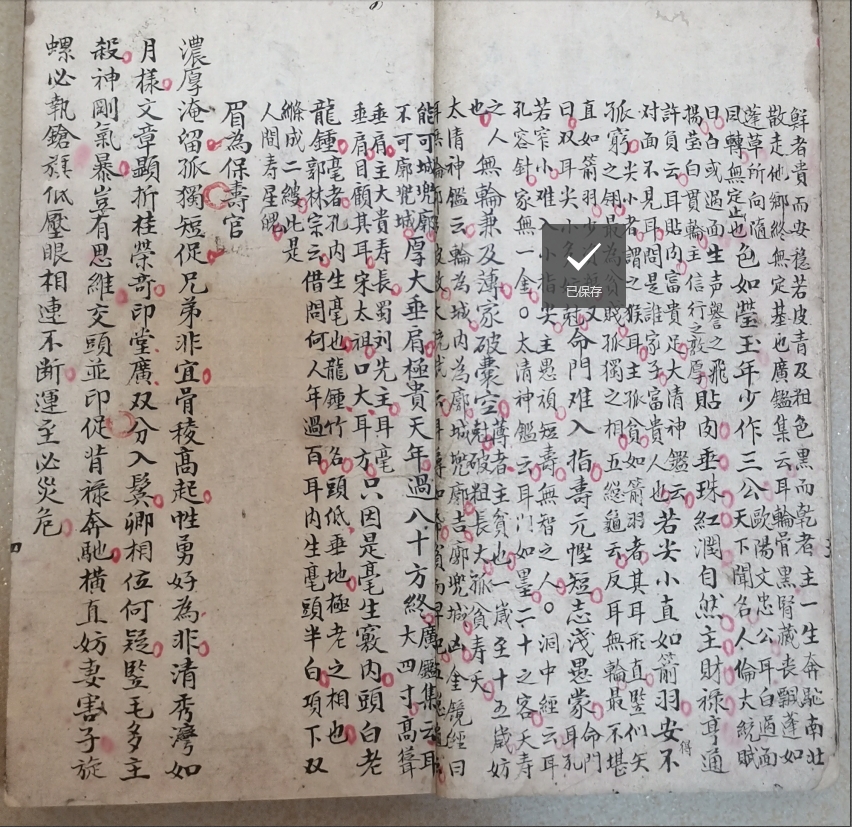 鮮者貴而安穏若皮青及粗色黑而乾者主一生奔馳南北
散走他鄉終無定基也廣鑑集云耳輪骨黑腎藏喪飄蓬如
蓬草所向隨
風轉無定止也色如瑩玉年少作三公天下聞名人倫大統賦
歐陽文忠公耳白過面
曰白或過面生声譽之飛貼肉垂珠紅潤自然主財禄亨通
揚瑩白貫輪主信行之敦厚
許負云耳貼肉富貴足大清神鑑云
對面不見耳問是誰家子富貴人也若尖小直如箭羽安不得
孤窮尖小者謂之猴耳主孤貧如箭羽者其耳形直竪似矢
之翎最為貧賤孤獨之相五總龜云反耳無輪最不堪
直如箭羽少資命門难入指壽元慳短志淺愚蒙
曰双耳尖小
若窄小难入小指尖主愚頑短壽無智之人。洞中經云耳
孔容針家無一金。太清神鑑云耳门如墨二十之客夭壽
之人無輪兼及薄家破囊空
也
薄者主貧也一歲至十五歲妨
尅破祖長大孤貧壽夭
太清神鑑云輪為城内為廓城兜廓吉廓兜城凶金鏡經曰
能可城兜廓
不可廓兜城厚大垂肩極貴天年過八十方終廣鑑集云耳
大四寸高聳
垂肩主大貴壽長蜀刘先主耳毫
垂肩目顧其耳宋太祖口大耳方只因是毫生竅内頭白老
龍鍾毫者孔内生毫也龍鍾竹名頭低垂地極老之相也
郭林宗云借問何人年過百耳内生毫頭半白項下双
縧成二縷此是
人間壽星魄
眉為保壽官
濃厚淹留孤獨短促兄弟非宜骨稜高起性勇好為非清秀灣如
月樣文章顯折桂榮奇印堂廣双分入鬢卿相伍何疑竪毛多主
殺神剛氣暴豈有思維交頭並印促背禄奔馳橫直妨妻害子旋
螺必執鎗旗低壓眼相連不断運至必災危
已保存